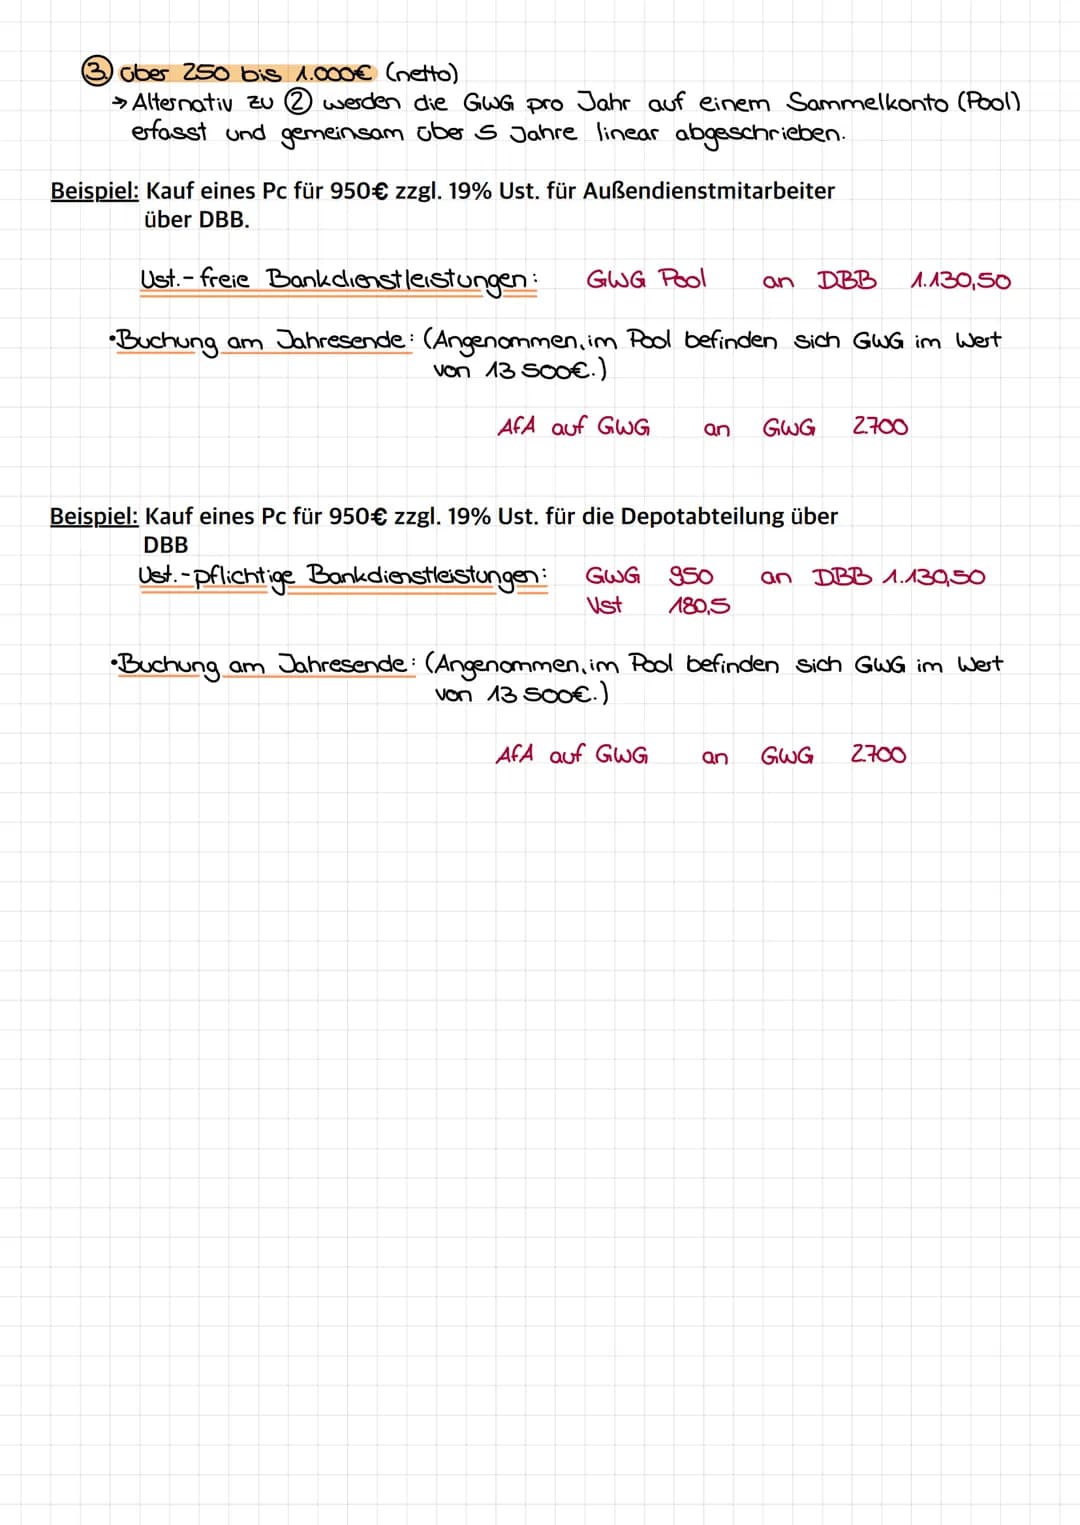 ③ über 250 bis 1.000€ (netto)
→ Alternativ zu ② werden die GWG pro Jahr auf einem Sammelkonto (Pool)
erfasst und gemeinsam über 5 Jahre linear abgeschrieben.
Beispiel: Kauf eines Pc für 950€ zzgl. 19% Ust. für Außendienstmitarbeiter
über DBB.
Ust.-freie Bankdienstleistungen: GWG Pool an DBB 1.130,50
•Buchung am Jahresende: (Angenommen, im Pool befinden sich GWG im Wert
von 13 500€.)
AfA auf GWG an GWG 2.700
Beispiel: Kauf eines Pc für 950€ zzgl. 19% Ust. für die Depotabteilung über
DBB
Ust.-pflichtige Bankdienstleistungen: GWG 950 an DBB 1.130,50
Vst 180,5
•Buchung am Jahresende: (Angenommen, im Pool befinden sich GWG im Wert
von 13 500€.)
AfA auf GWG an GWG 2.700